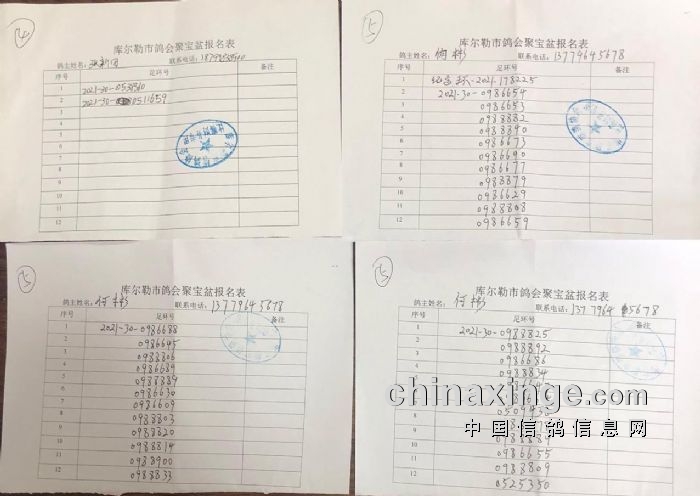 4
库尔勒市鸽会聚宝盆报名表
鸽主姓名: 联系电话:
序号 足环号 备注
1 2021-30-0530510
2 2021-30-0511659
3
4
5
6
7
8
9
10
11
12
5
库尔勒市鸽会聚宝盆报名表
鸽主姓名: 何彬 联系电话: 13779645678
序号 足环号 备注
1 2021-178225
2 2021-30-0986654
3 0986653
4 0988882
5 0988890
6 0986673
7 0986690
8 0986677
9 0988879
10 0986629
11 0988808
12 0986659
5
库尔勒市鸽会聚宝盆报名表
鸽主姓名: 何彬 联系电话: 13779645678
序号 足环号 备注
1 2021-30-0986688
2 0986645
3 0988806
4 0986689
5 0988889
6 0986630
7 0986609
8 0988803
9 0988820
10 0988814
11 0988900
12 0988833
5
库尔勒市鸽会聚宝盆报名表
鸽主姓名: 何彬 联系电话: 1377964 5678
序号 足环号 备注
1 2021-30-0988825
2 0988892
3 0986686
4 0988834
5
6
7
8
9
10 0986655
11 0988809
12 0525350
chinaxinge.com
中国信鸽信息网